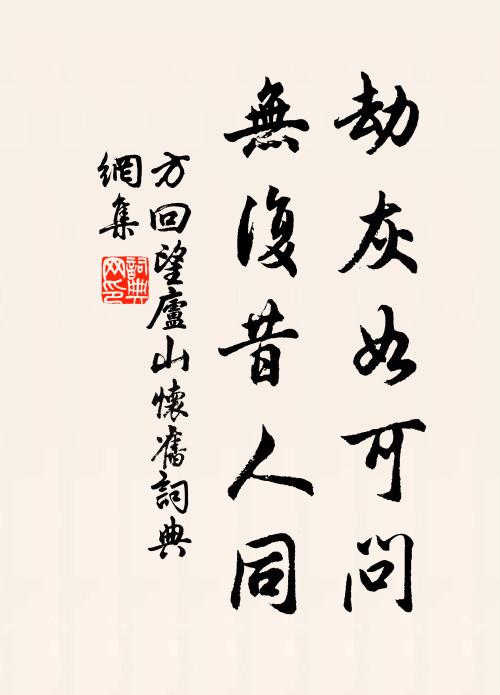 劫灰如可問
無復昔人同
方回望廬山懷舊詞典
網集
詞典網印